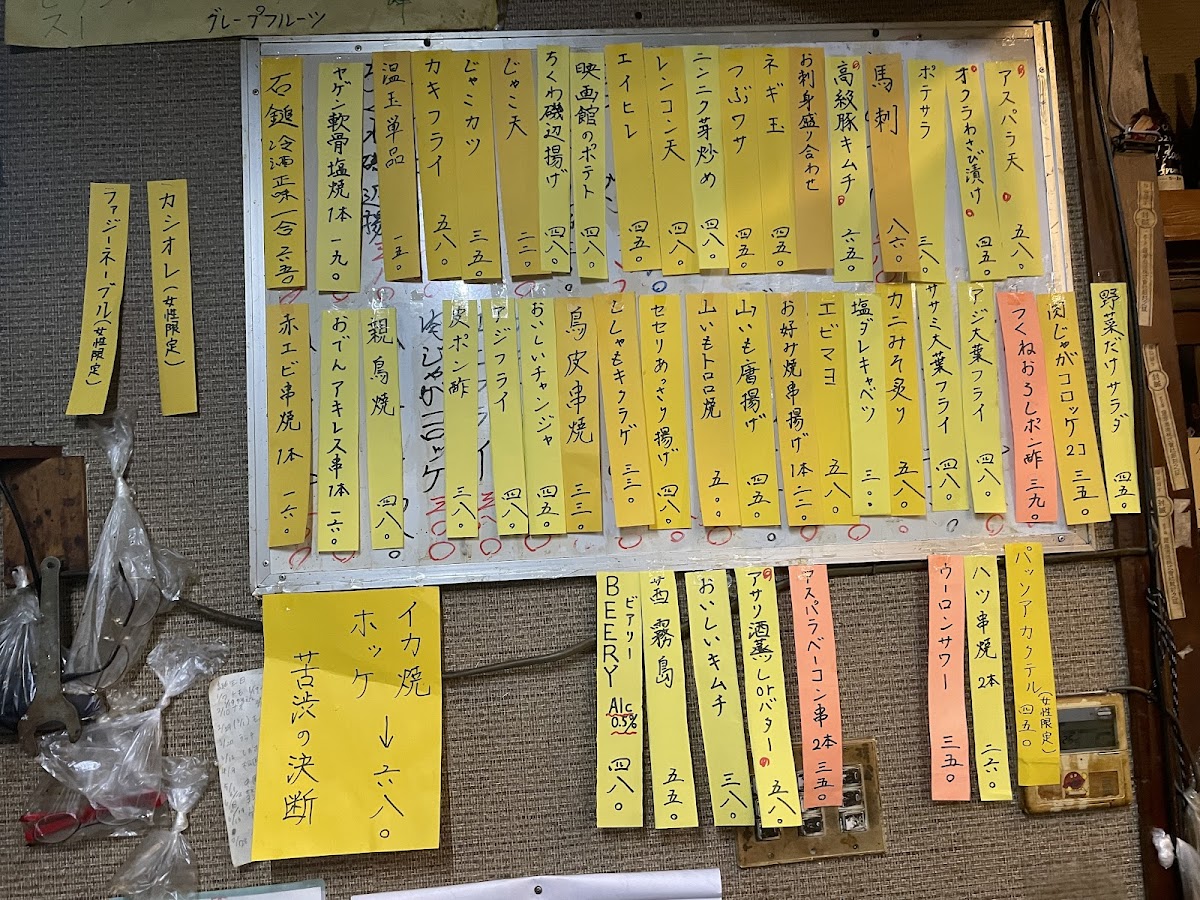 グレープフルーツ
アスパラ天 五八〇
オクラわさび漬け 四五〇
ポテサラ 三八〇
馬刺 八六〇
高級豚キムチ 六五〇
お刺身盛り合わせ
ネギ玉 四五〇
つぶワサ 四五〇
ニンニク芽炒め 四八〇
レンコン天 四八〇
エイヒレ 四五〇
映画館のポテト 四八〇
ちくわ磯辺揚げ 四八〇
じゃこ天 二二〇
じゃこカツ 三五〇
カキフライ 五八〇
温玉単品 一五〇
ヤゲン軟骨塩焼 1本 一九〇
石鎚冷酒正味一合 六五〇
野菜だけサラダ 四五〇
肉じゃがコロッケ 2コ 三五〇
つくねおろしポン酢 三九〇
アジ大葉フライ 四八〇
ササミ大葉フライ 四八〇
カニみそ炙り 五八〇
塩ダレキャベツ 三〇〇
エビマヨ 五八〇
お好み焼串揚げ 1本 二二〇
山いも唐揚げ 四五〇
山いもトロロ焼 五〇〇
セセリあっさり揚げ 四八〇
ししゃもキクラゲ 三三〇
鳥皮串焼 三三〇
おいしいチャンジャ 四五〇
アジフライ 四八〇
皮ポン酢 三八〇
肉じゃがコロッケ
親鳥焼 四八〇
おでんアキレス串 1本 一六〇
赤エビ串焼 1本 一六〇
カシオレ(女性限定)
ファジーネーブル(女性限定)
パッソアカクテル(女性限定) 四五〇
ハツ串焼 2本 二六〇
ウーロンサワー 三五〇
アスパラベーコン串 2本 三五〇
アサリ酒蒸しorバター 五八〇
おいしいキムチ 三八〇
茜霧島 五五〇
ビアリー
BEERY Alc 0.5% 四八〇
イカ焼
ホッケ → 六八〇
苦渋の決断